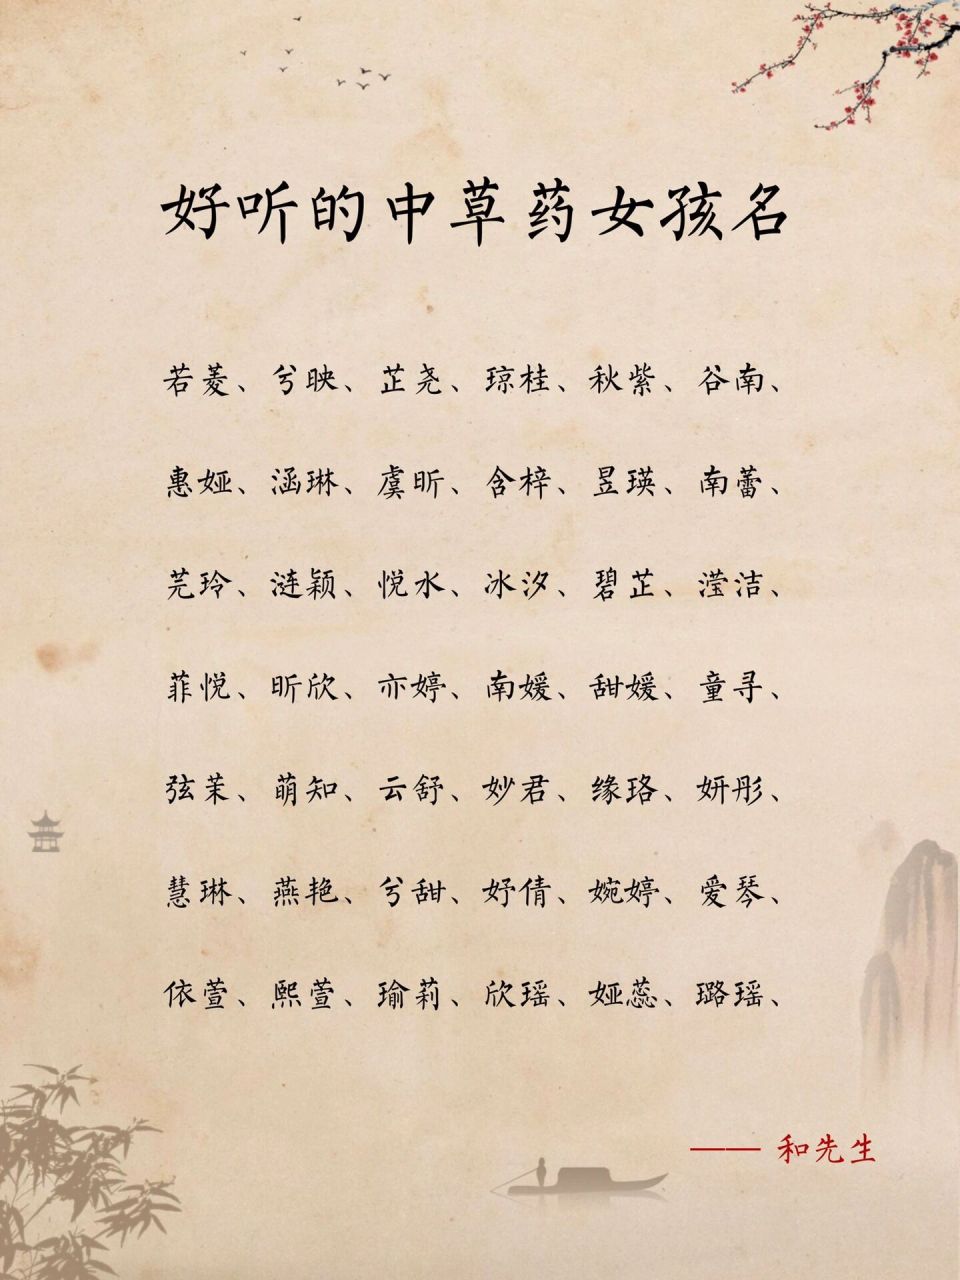 好听的中草药女孩名
若菱、兮映、芷尧、琼桂、秋紫、谷南、
惠娅、涵琳、虞昕、含梓、昱瑛、南蕾、
芫玲、涟颖、悦水、冰汐、碧芷、滢洁、
菲悦、昕欣、亦婷、南媛、甜媛、童寻、
弦茉、萌知、云舒、妙君、缘珞、妍彤、
慧琳、燕艳、兮甜、妤倩、婉婷、爱琴、
依萱、熙萱、瑜莉、欣瑶、娅蕊、璐瑶、
—— 和先生